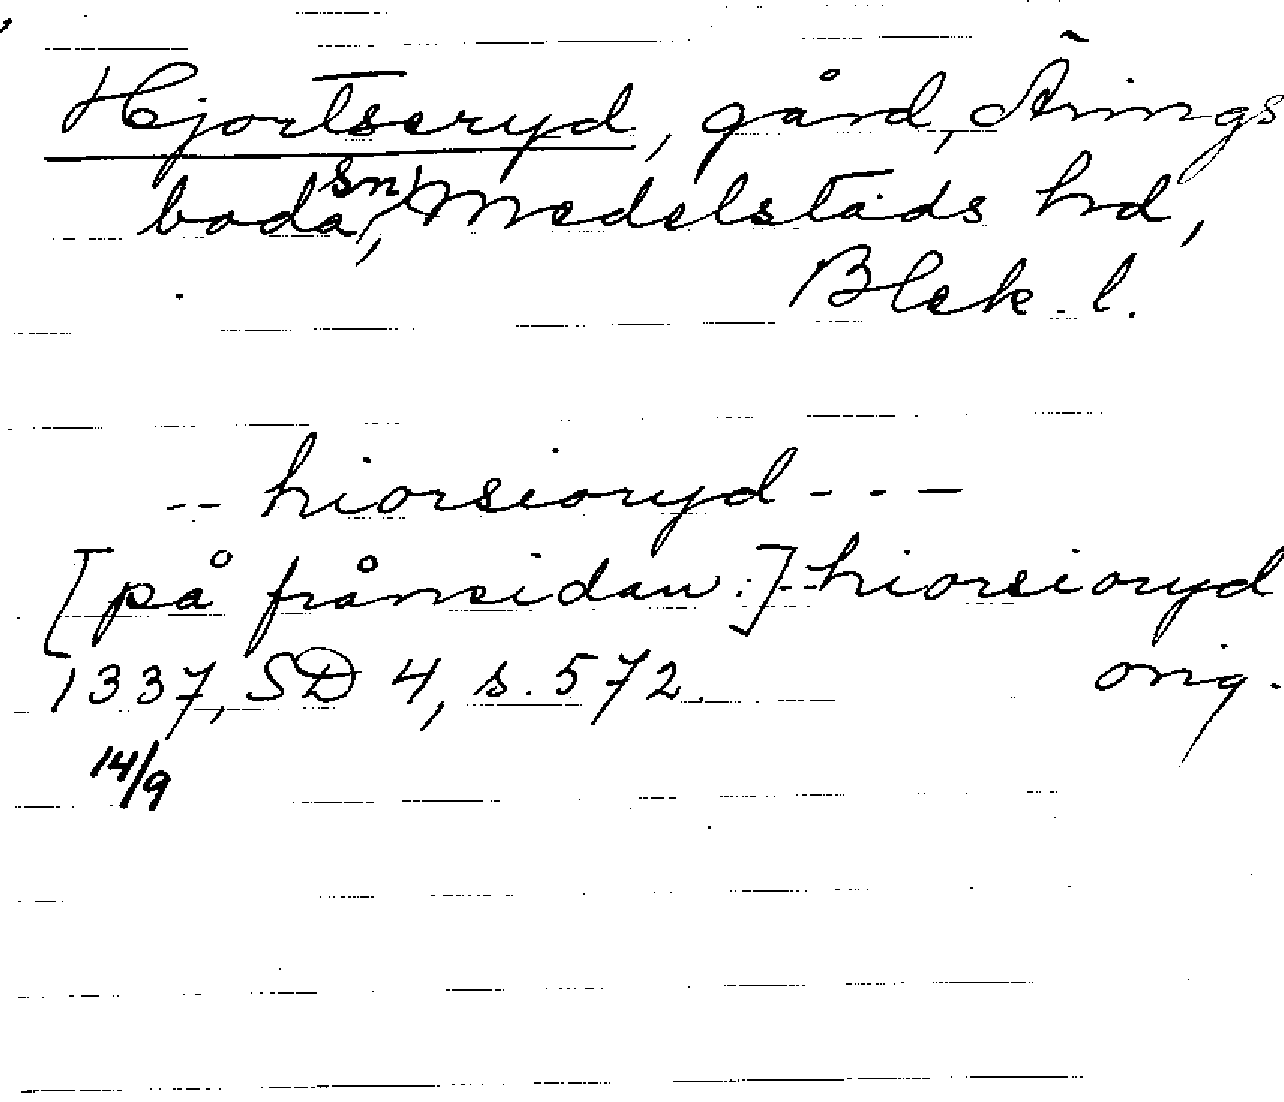 Hjortseryd, gård, Ärings
boda sn, Medelstads hd,
Blek. l.
-- hiorsioryd - - -
[på frånsidan:] -- hiorsioryd
1337, SD 4, s. 572. orig.
14/9